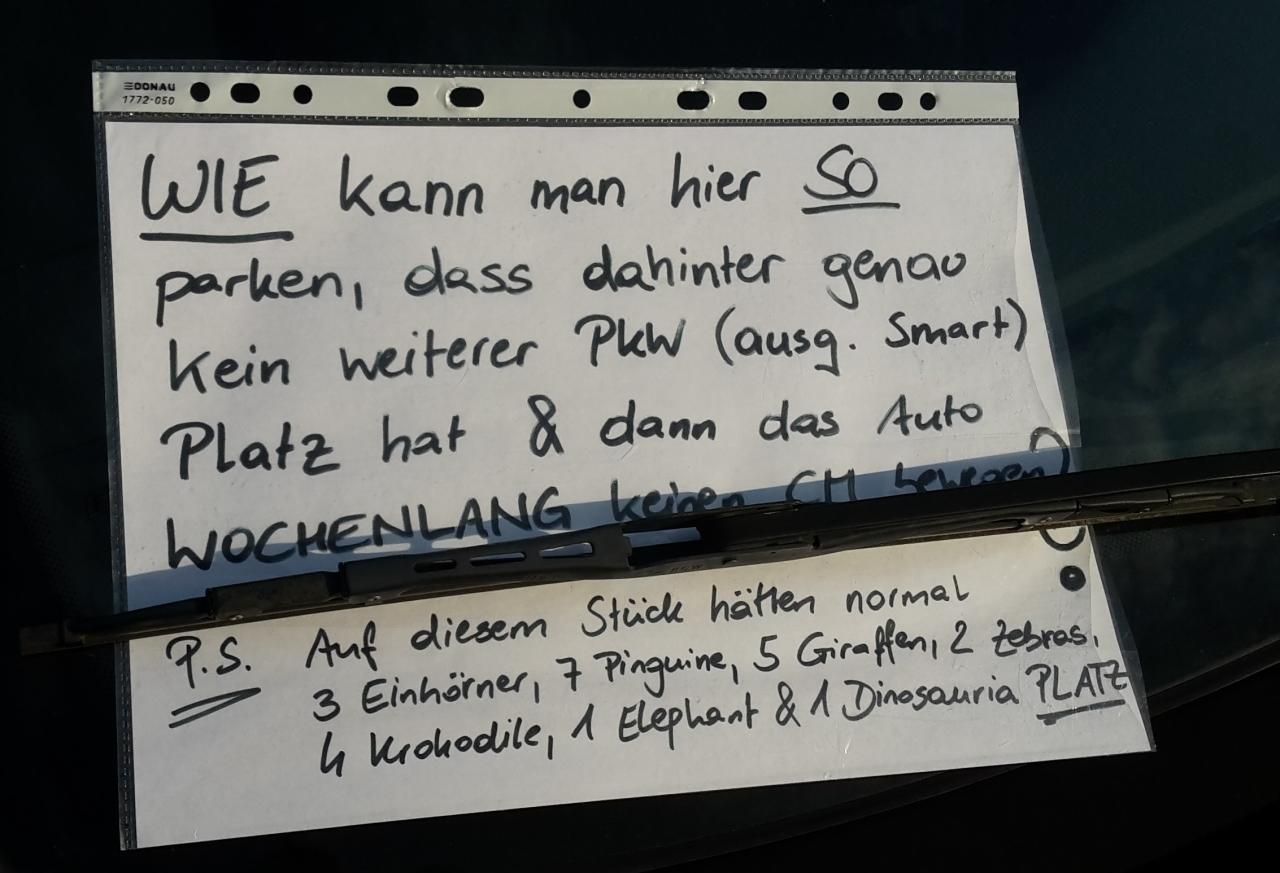 DONAU
1772-050
WIE kann man hier SO
parken, dass dahinter genau
kein weiterer PKW (ausg. Smart)
Platz hat & dann das Auto
WOCHENLANG keinen CM bewegen
P.S. Auf diesem Stück hätten normal
3 Einhörner, 7 Pinguine, 5 Giraffen, 2 Zebras,
4 Krokodile, 1 Elephant & 1 Dinosauria PLATZ